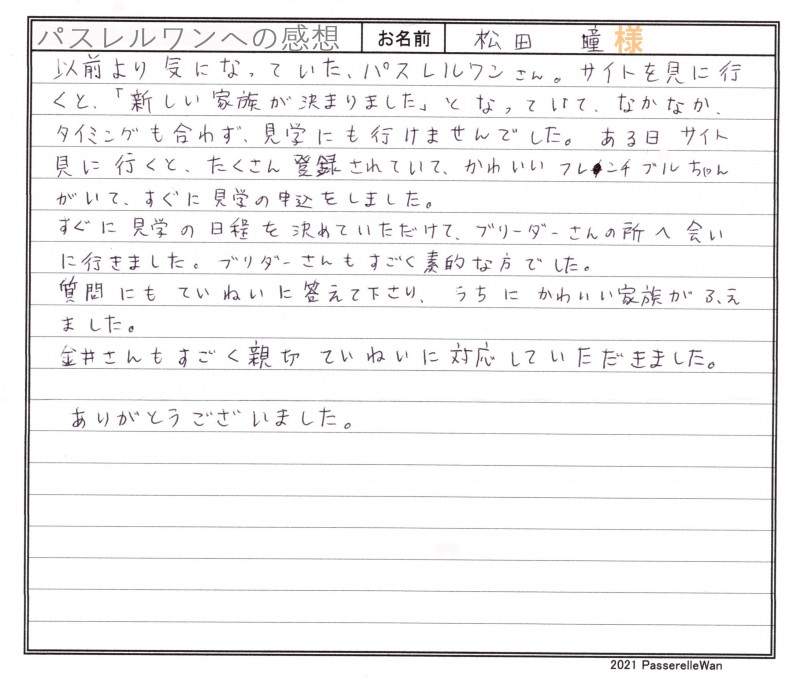 パスレルワンへの感想 お名前 松田 瞳 様
以前より気になっていた、パスレルワンさん。サイトを見に行
くと、「新しい家族が決まりました」となっていて、なかなか、
タイミングも合わず、見学にも行けませんでした。ある日 サイト
見に行くと、たくさん登録されていて、かわいいフレンチブルちゃん
がいて、すぐに見学の申込をしました。
すぐに見学の日程を決めていただけて、ブリーダーさんの所へ会い
に行きました。ブリダーさんもすごく素的な方でした。
質問にもていねいに答えて下さり、うちにかわいい家族がふえ
ました。
金井さんもすごく親切 ていねいに対応していただきました。
ありがとうございました。
2021 PasserelleWan